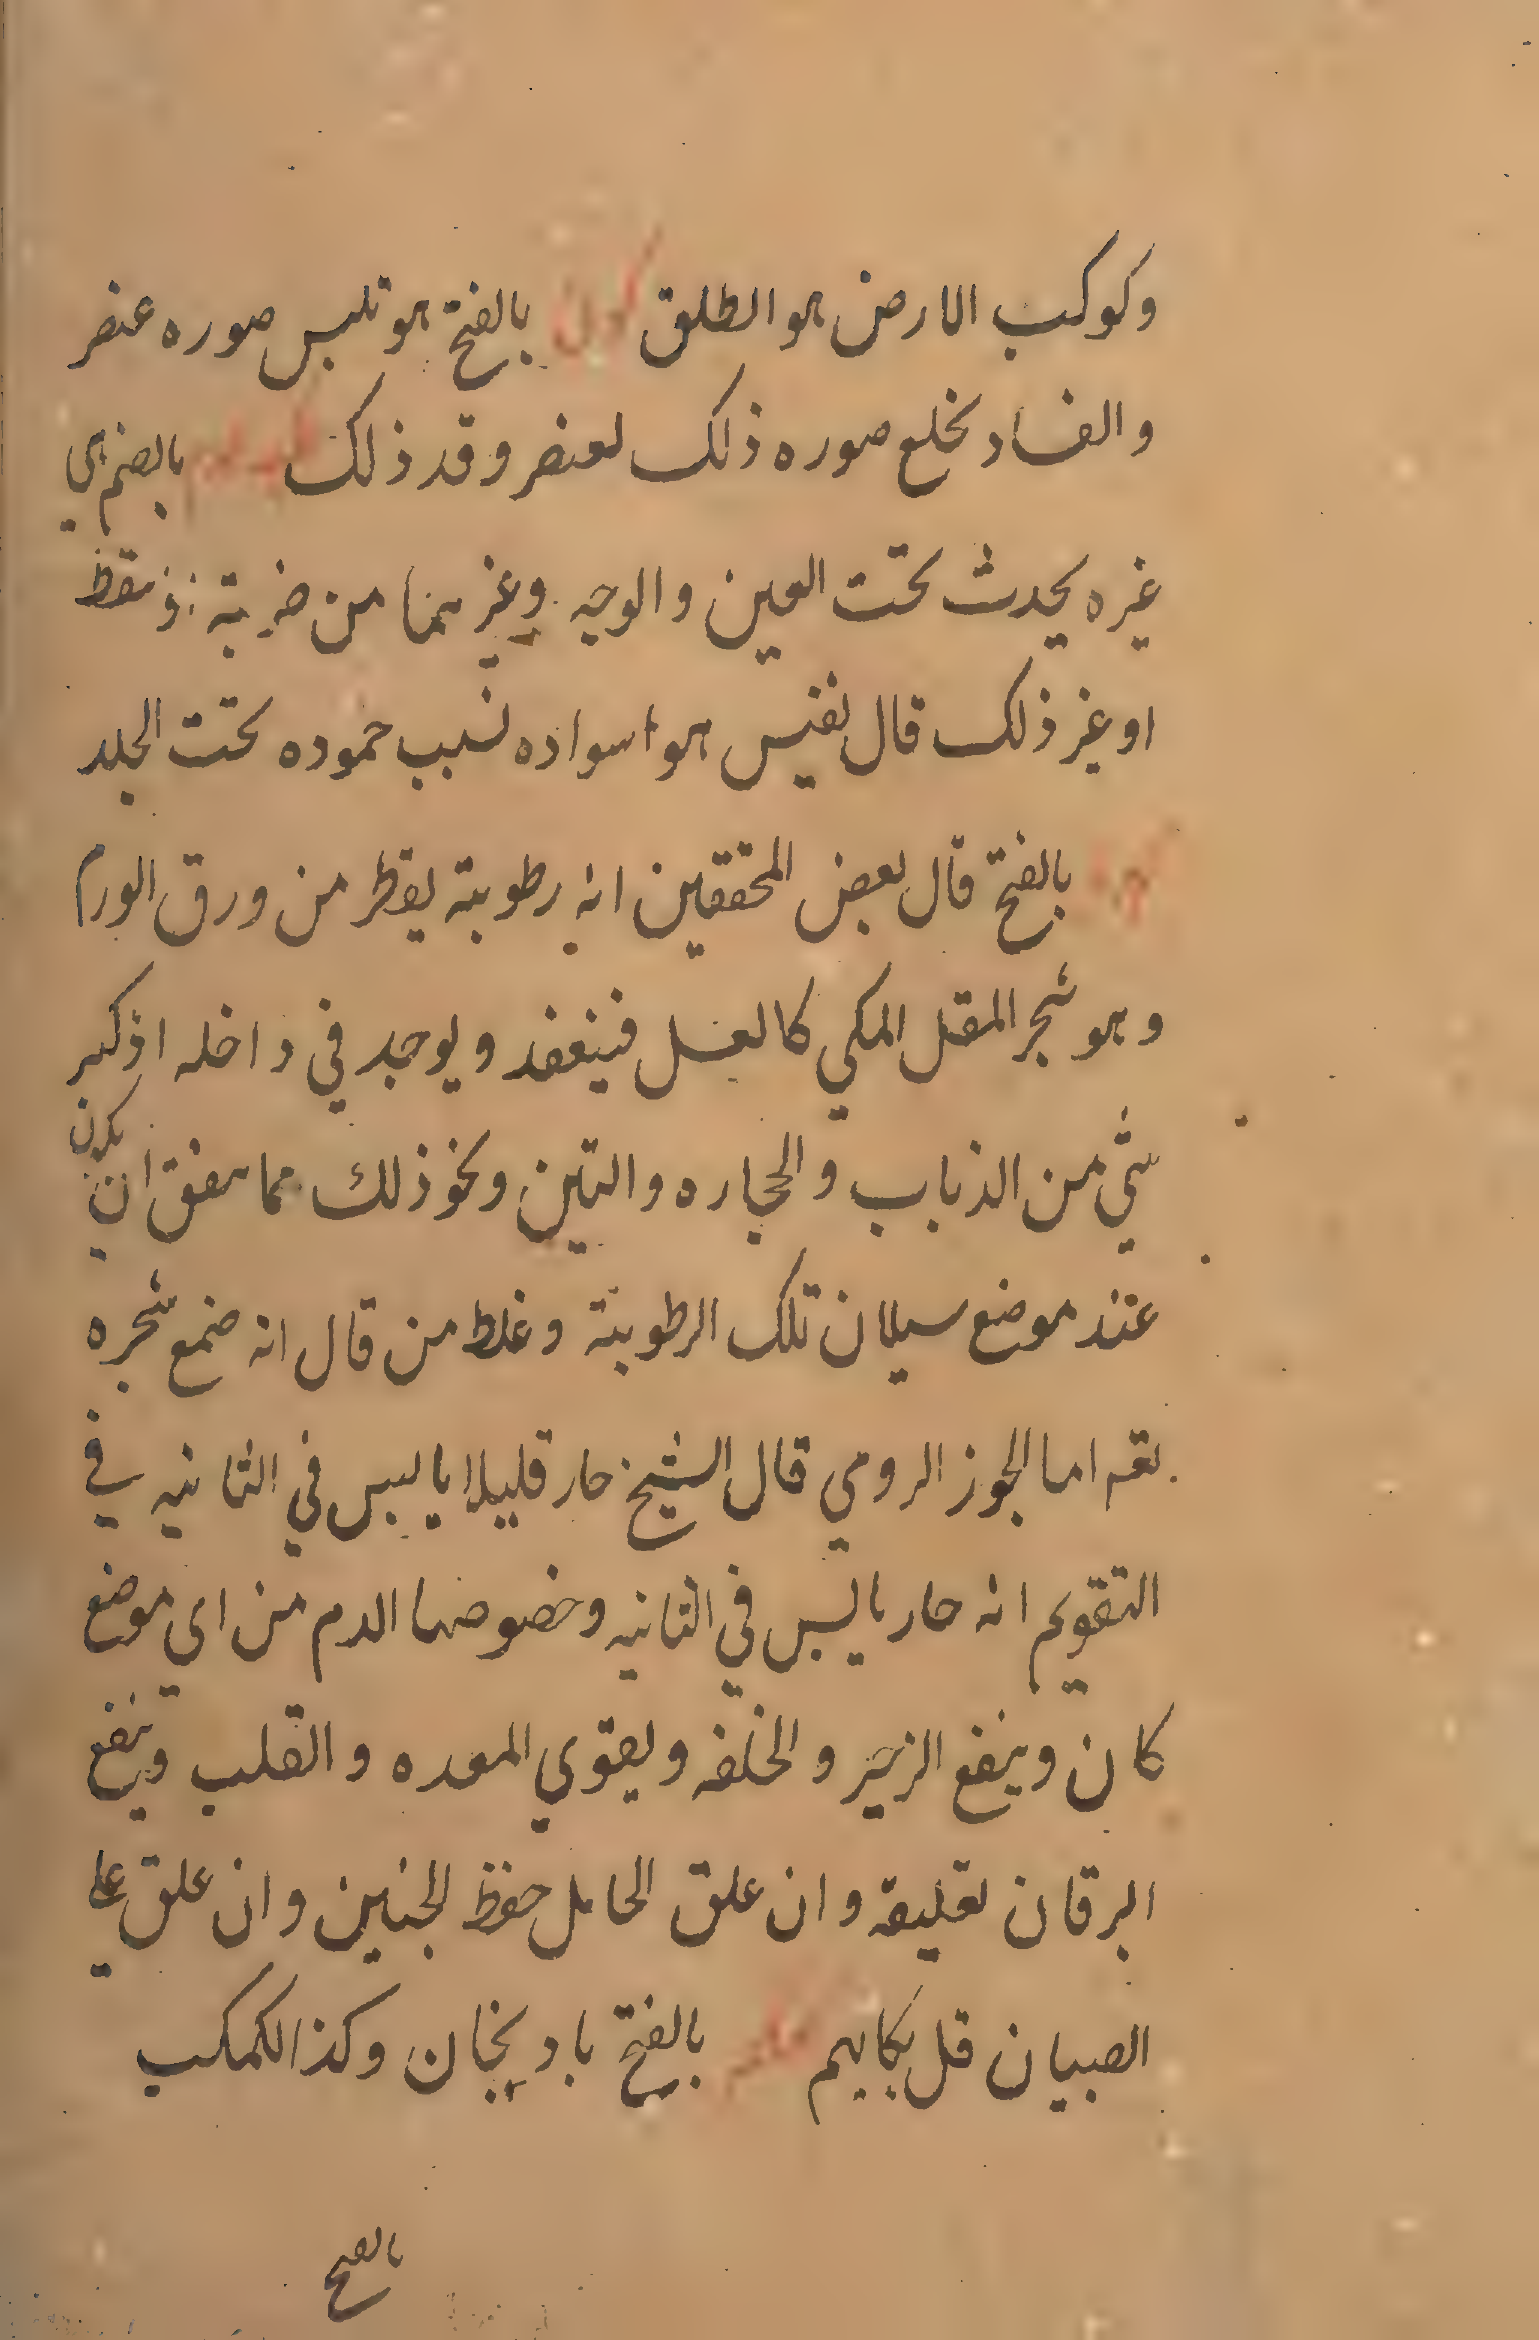 وكوكب الارض هو الطلق كون بالفتح هو تلبس صوره عنصر
والفساد بخلع صوره ذلك لعنصر وقد ذلك بالضم اي
غيره يحدث تحت العين والوجه وغيرهما من ضربة او سقط
او غير ذلك قال نفيس هو اسواده لسبب جموده تحت الجلد
بالفتح قال بعض المحققين انه رطوبة يقطر من ورق الورم
وهو شجر المقل المكي كالعسل فينعقد ويوجد في داخله اذ كبر
شي من الذباب والحجاره والتين ونحو ذلك مما يتفق ان يكون
عند موضع سيلان تلك الرطوبة وغلط من قال انه صمغ شجره
نعم اما الجوز الرومي قال الشيخ حار قليلا يابس في الثانيه في
التقويم انه حار يابس في الثانيه وخصوصها الدم من اي موضع
كان وينفع الزحير والخلفه ويقوي المعده والقلب وينفع
اليرقان تعليقه وان علق الحامل حفظ الجنين وان علق علي
الصبيان قل بكايهم بالفتح بادنجان وكذا الكمكب
بالفتح